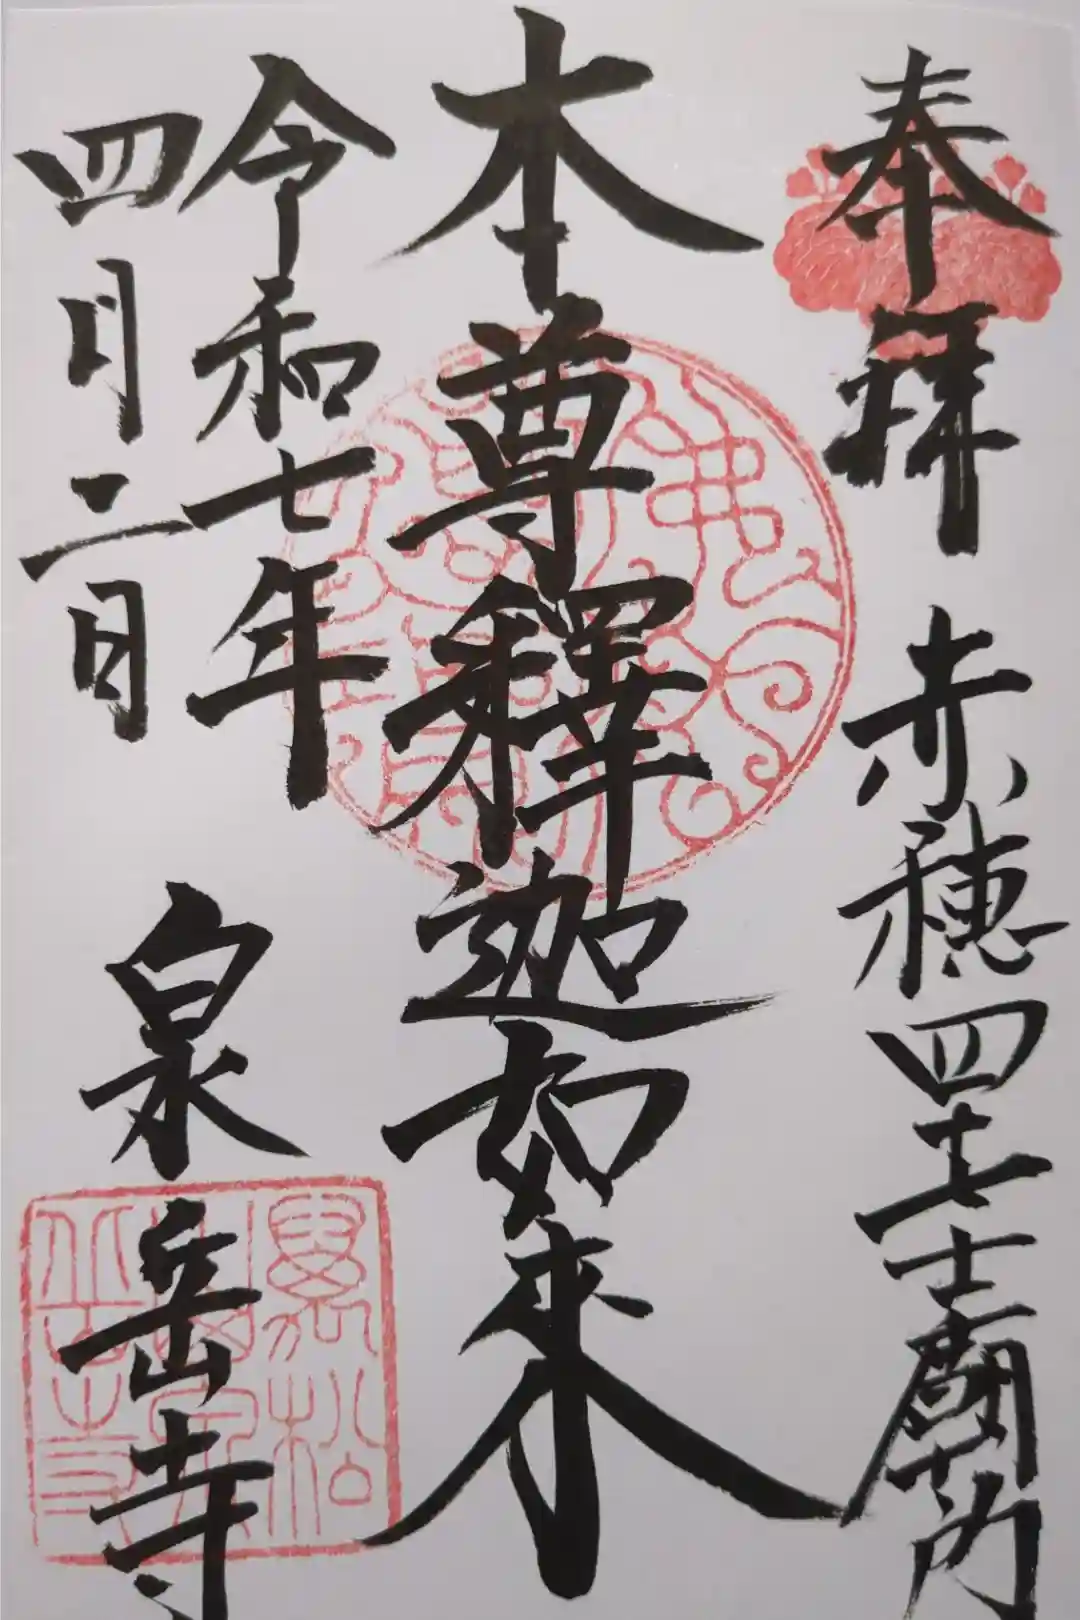 奉拝 赤穂四十七士廟所内
本尊釋迦如来
令和七年
四月二日
泉岳寺